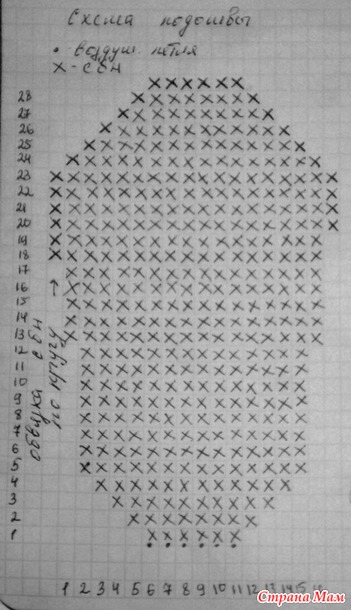 Схема подошвы
• воздуш. петля
X - СБН
28
27
26
25
24
23
22
21
20
19
18
17
16
15
14
13
12
11
10
9
8
7
6
5
4
3
2
1
обвязка
по кругу
1 2 3 4 5 6 7 8 9 10 11 12 13 14 15 16
Страна Мам